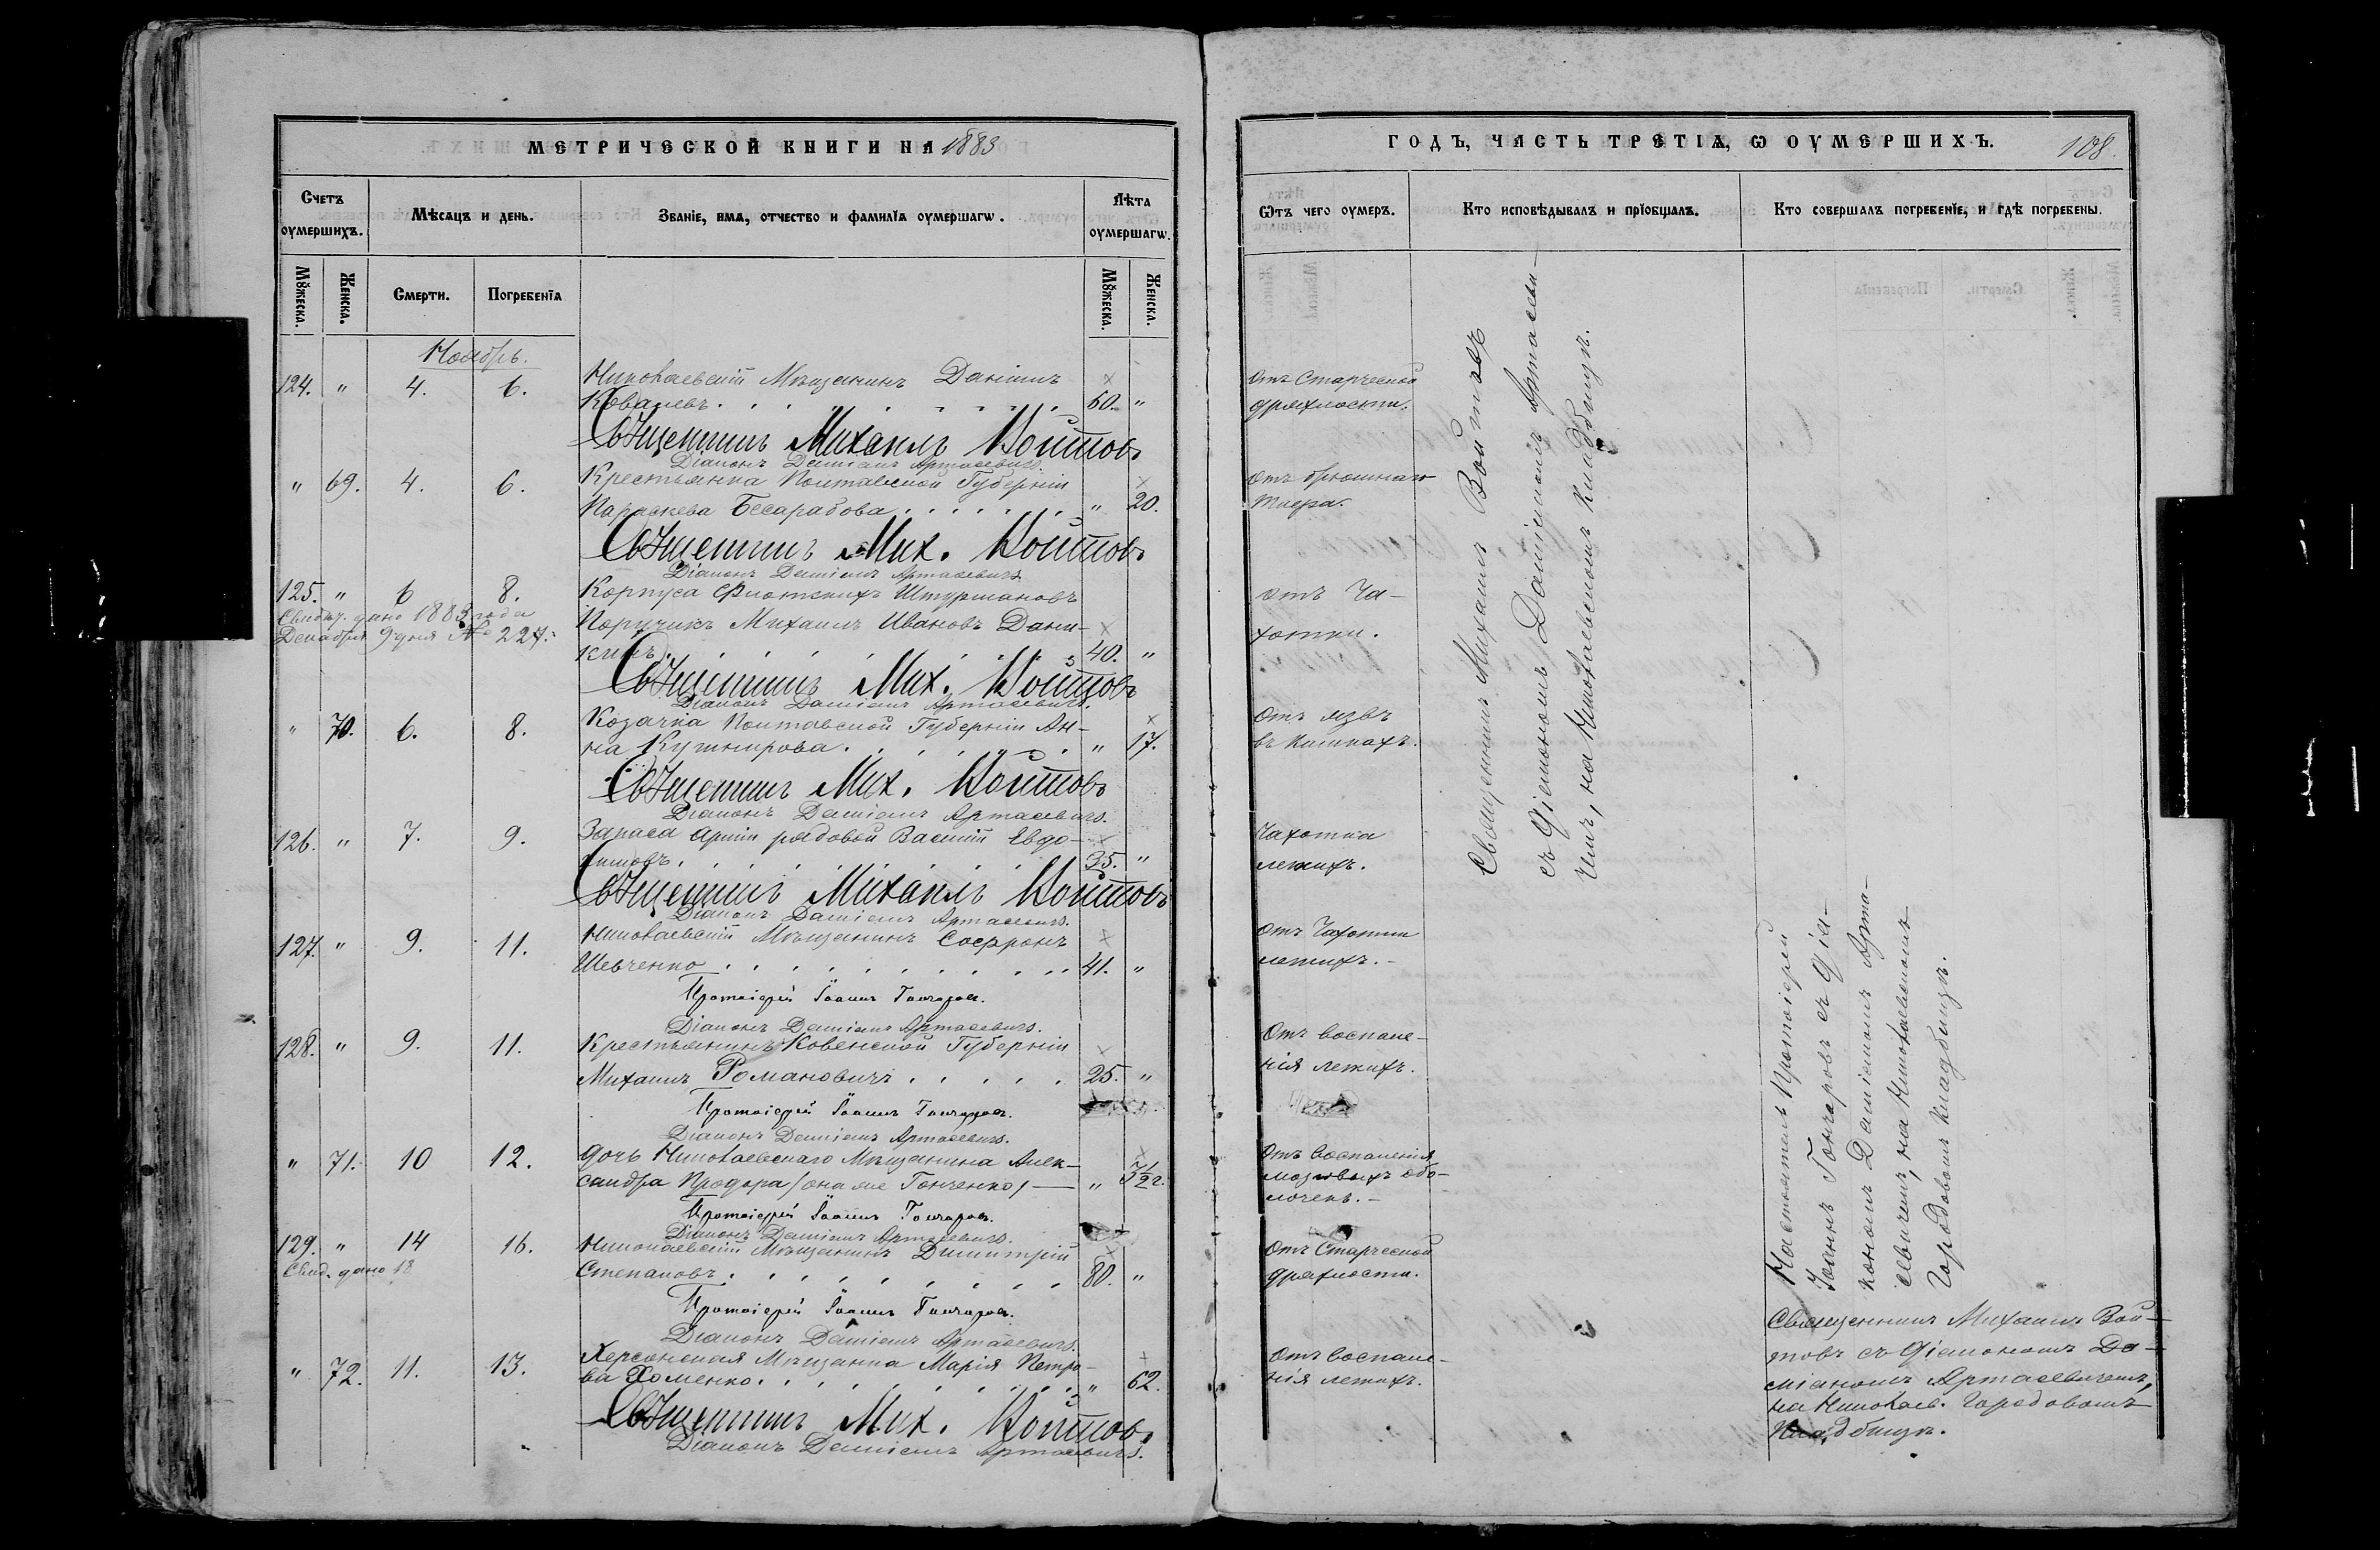 МЕТРИЧЕСКОЙ КНИГИ НА 1883
Счетъ оумершихъ.
Мѣсяцъ и день.
Званіе, имя, отчество и фамилїя оумершагѡ.
Лѣта оумершагѡ.
Мꙋжеска.
Женска.
Смерти.
Погребенїя
Мꙋжеска.
Женска.
Ноябрь.
124. " 4. 6. Николаевскій Мѣщанинъ Даніилъ
Ковалевъ. 60. "
Священникъ Михаилъ Войтовъ
Діаконъ Даміанъ Артасевичъ.
" 69. 4. 6. Крестьянка Полтавской Губерніи
Параскева Бесарабова " 20.
Священникъ Мих. Войтовъ
Діаконъ Даміанъ Артасевичъ
125. " 6 8. Корпуса Флотскихъ Штурмановъ
Свидѣт. дано 1883 года
Поручикъ Михаилъ Ивановъ Дани-
Декабря 9 дня № 227.
кинъ. 40. "
Священникъ Мих. Войтовъ
Діаконъ Даміанъ Артасевичъ.
" 70. 6. 8. Козачка Полтавской Губерніи Ан-
на Кушнирова. " 17.
Священникъ Мих. Войтовъ
Діаконъ Даміанъ Артасевичъ.
126. " 7. 9. Запаса арміи рядовой Василій Евдо-
кимовъ. 35. "
Священникъ Михаилъ Войтовъ
Діаконъ Даміанъ Артасевичъ.
127. " 9. 11. Николаевскій Мѣщанинъ Софронъ
Шевченко 41. "
Протоіерей Іоаннъ Гончаровъ.
Діаконъ Даміанъ Артасевичъ.
128. " 9. 11. Крестьянинъ Ковенской Губерніи
Михаилъ Романовичъ 25. "
Протоіерей Іоаннъ Гончаровъ.
Діаконъ Даміанъ Артасевичъ.
" 71. 10 12. Дочь Николаевскаго Мѣщанина Алек-
сандра Продора /она же Гонченко/ "
Протоіерей Іоаннъ Гончаровъ.
Діаконъ Даміанъ Артасевичъ.
129. " 14 16. Николаевскій Мѣщанинъ Димитрій
Свид. дано 18
Степановъ. 80. "
Протоіерей Іоаннъ Гончаровъ.
Діаконъ Даміанъ Артасевичъ.
" 72. 11. 13. Херсонская Мѣщанка Марія Петро-
ва Хоменко. " 62.
Священникъ Мих. Войтовъ
Діаконъ Даміанъ Артасевичъ.
ГОДЪ, ЧАСТЬ ТРЕТІЯ, Ѡ ОУМЕРШИХЪ. 108.
Ѿтъ чего оумеръ.
Кто исповѣдывалъ и прїобщалъ.
Кто совершалъ погребенїе, и гдѣ погребены.
Отъ Старческой
дряхлости.
Отъ брюшнаго
тифа.
Отъ Ча-
хотки.
Отъ язвъ
въ кишкахъ.
Чахотка
легкихъ.
Отъ Чахотки
легкихъ.
Отъ воспале-
нія легкихъ.
Отъ воспаленія
мозговыхъ обо-
лочекъ.
Отъ Старческой
дряхлости.
Отъ воспале-
нія легкихъ.
Священникъ Михаилъ Войтовъ
съ Діакономъ Даміаномъ Артасеви-
чемъ, на Николаевскомъ кладбищѣ.
Настоятель Протоіерей
Іоаннъ Гончаровъ съ Діа-
кономъ Даміаномъ Арта-
севичемъ, на Николаевскомъ
Городовомъ кладбищѣ.
Священникъ Михаилъ Вой-
товъ съ Діакономъ Да-
міаномъ Артасевичемъ,
на Николаев. Городовомъ
Кладбищѣ.